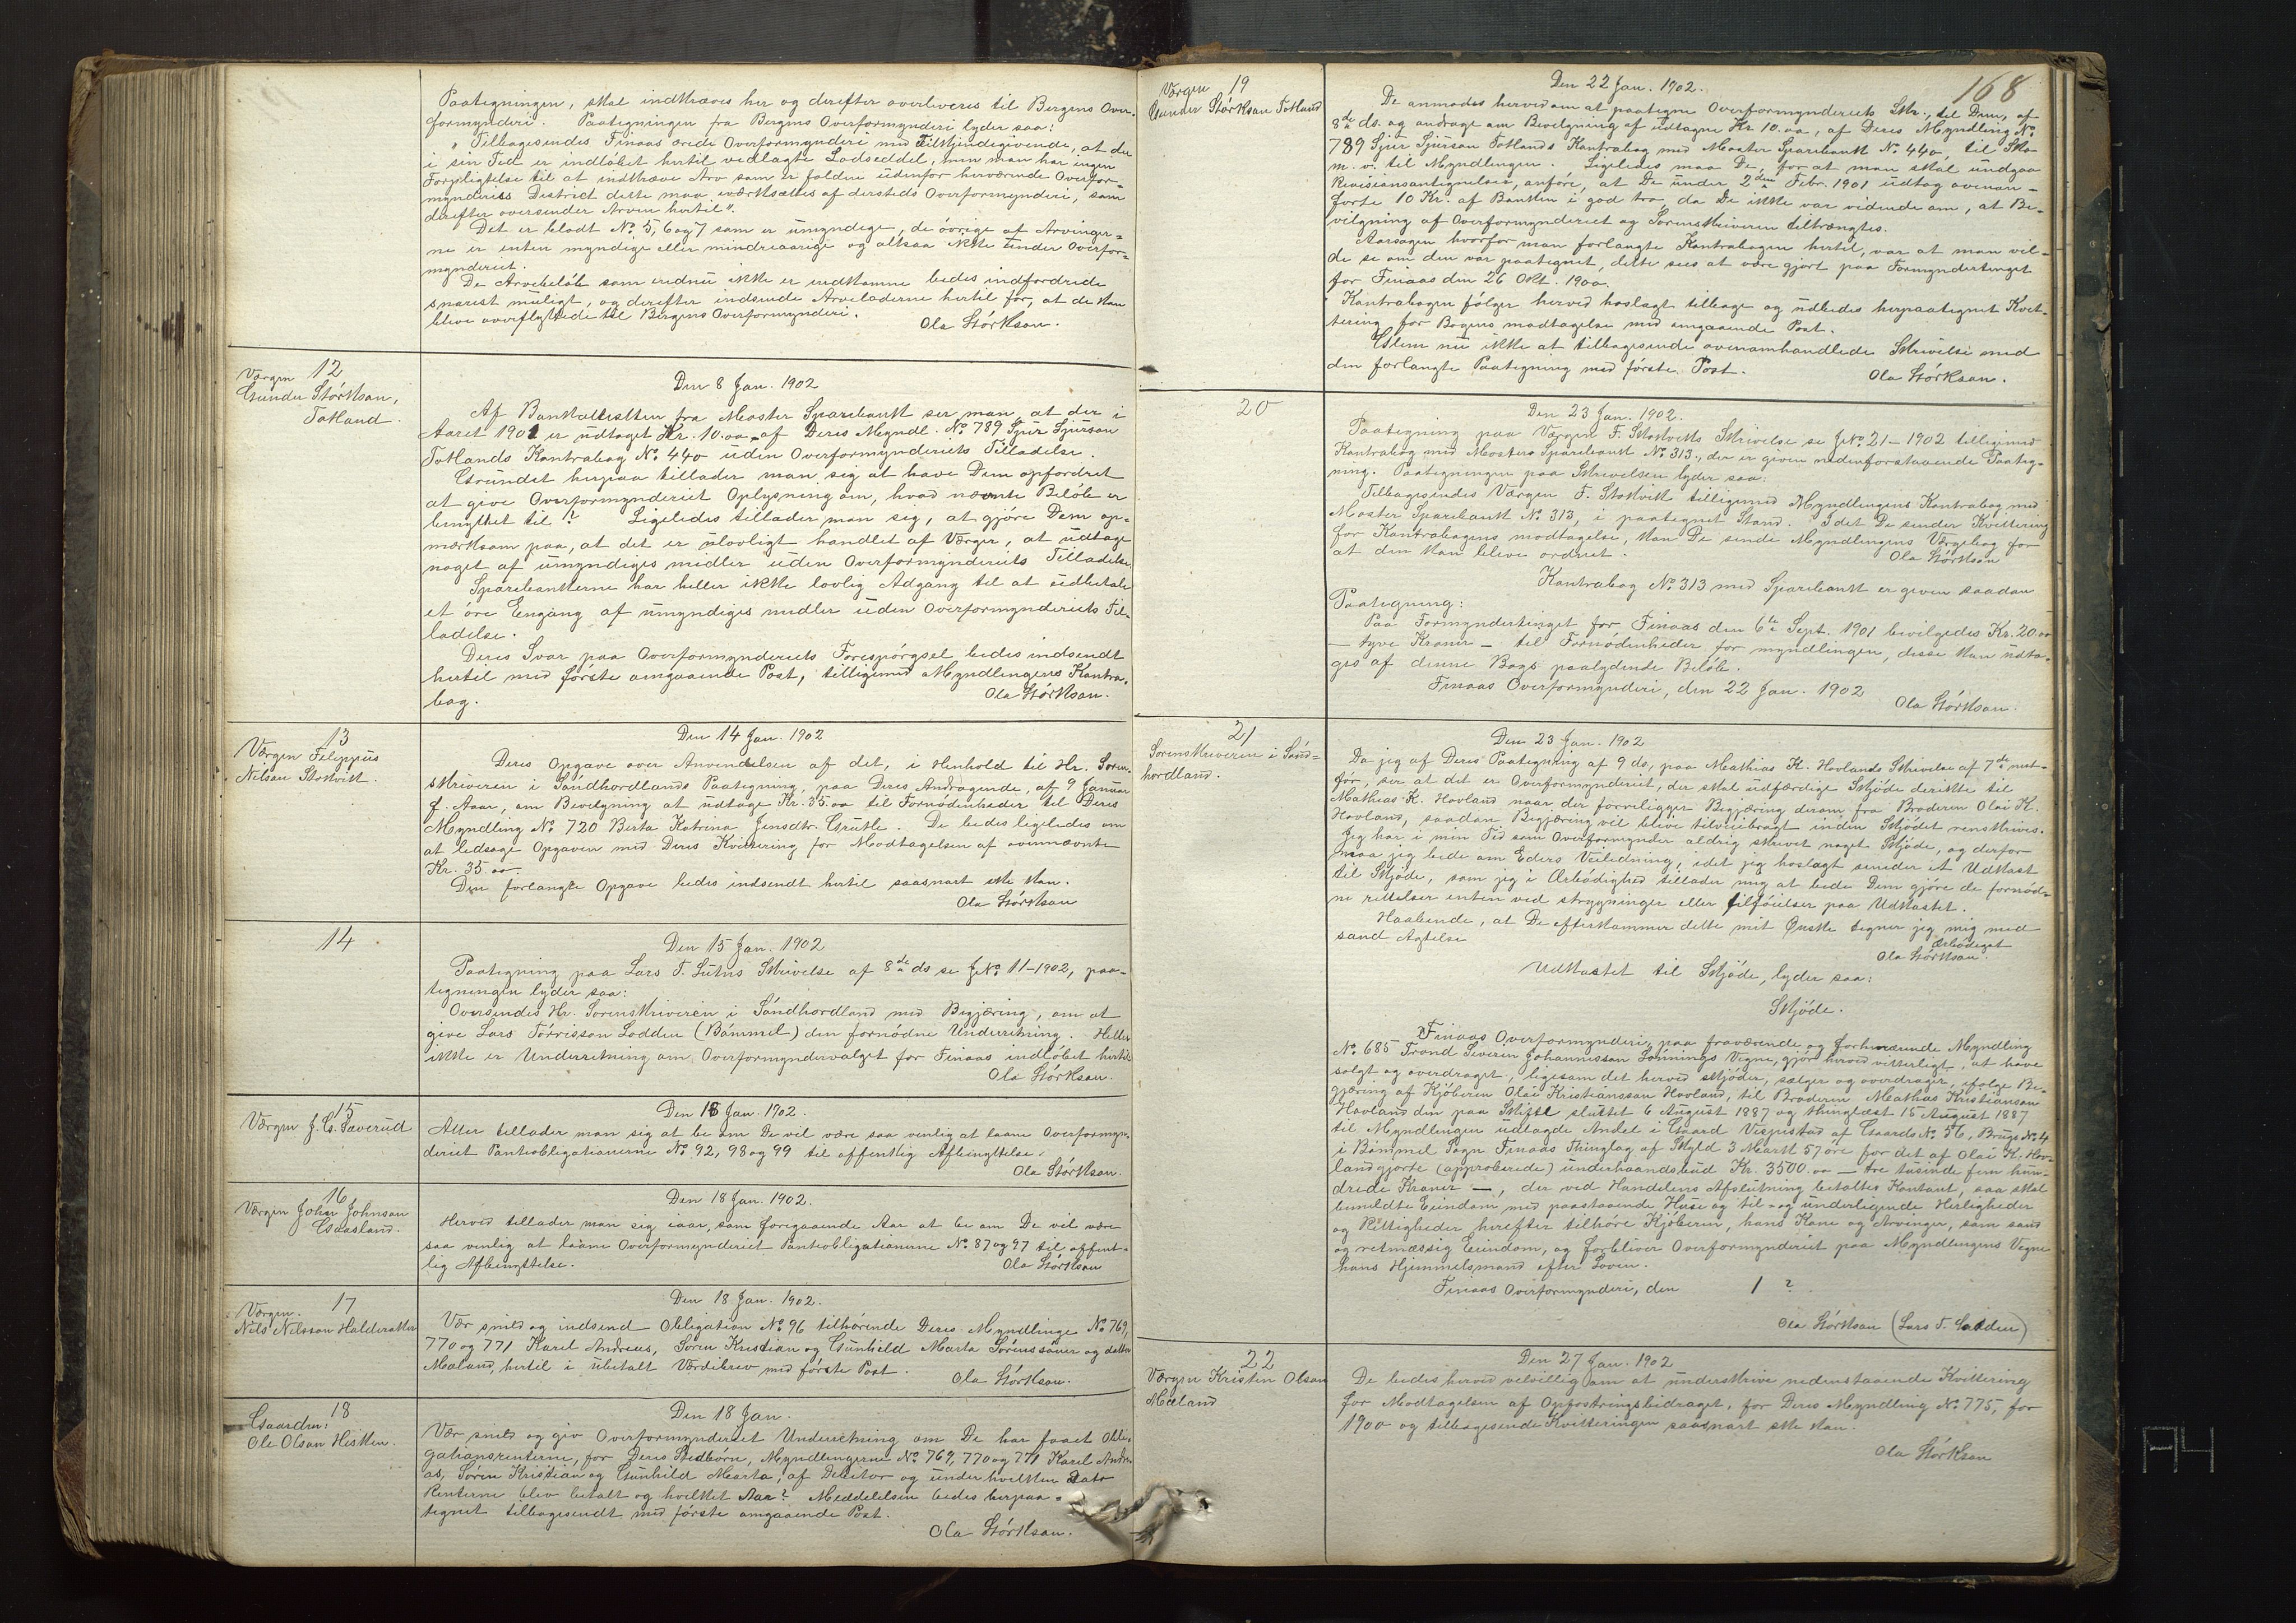 Paategningen, skal indkræves her og derefter overleveres til Bergens Over-
formynderi. Paategningen fra Bergens Overformynderi lyder saa:
"Tilbagesendes Finaas ærede Overformynderi med Tilkjendegivende, at der
i sin Tid er indløbet hertil vedlagte Lodseddel, men man har ingen
Forpligtelse til at indkræve Arv som er falden udenfor herværende Overfor-
mynderies District dette maa iværksættes af dersteds Overformynderi, som
derefter oversender Arven hertil".
Det er blodt No. 5, 6 og 7 som er umyndige, de øvrige af Arvinger-
ne er enten myndige eller mindreaarige og altsaa ikke under Overfor-
mynderiet.
De Arvebeløb som endnu ikke er indkomne bedes indfordrede
snarest muligt, og derefter indsende Arveloderne hertil for, at de kan
blive overflyttede til Bergens Overformynderi.
Ola Størkson.
12
Værgen
Gunder Størkson,
Totland.
Den 8 Jan. 1902
Af Bankattesten fra Moster Sparebank ser man at der i
Aaret 1901 er udtaget Kr. 10.00 af Deres Myndl. No. 789 Sjur Sjurson
Totlands Kontrabog No. 440 uden Overformynderiets Tilladelse.
Grundet herpaa tillader man sig at have Dem opfordret
at give Overformynderiet Oplysning om, hvad nævnte Beløb er
benyttet til? Ligeledes tillader man sig, at gjøre Dem op-
mærksom paa, at det er ulovligt handlet af Værger, at udtage
noget af umyndiges midler uden Overformynderiets Tilladelse.
Sparebankerne har heller ikke lovlig Adgang til at udbetale
et øre Engang af umyndiges midler uden Overformynderiets Til-
ladelse.
Deres Svar paa Overformynderiets Forespørgsel bedes indsendt
hertil med første omgaaende Post, tilligemed Myndlingens Kontra-
bog.
Ola Størkson.
13
Værgen Filippus
Nilson Stokvik.
Den 14 Jan. 1902
Deres Opgave over Anvendelsen af det, i Henhold til Hr. Soren-
skriveren i Søndhordlands Paategning, paa Deres Andragende, af 9 Januar
f. Aar, om Bevilgning at udtage Kr. 35.00 til Fornødenheder til Deres
Myndling No. 720 Berta Katrina Jensdtr. Grutle. De bedes ligeledes om
at ledsage Opgaven med Deres Kvittering for Modtagelsen af ovennævnte
Kr. 35.00.
Den forlangte Opgave bedes indsendt hertil saasnart ske kan.
Ola Størkson
14
Den 15 Jan. 1902
Paategning paa Lars T. Skrivelse af 8de ds se J. No. 11-1902, paa-
tegningen lyder saa:
Oversendes Hr. Sorenskriveren i Søndhordland med Begjæring, om at
give Lars Tørrisson Lodden (Bømmel) den fornødne Underretning. Heller
ikke er Underretning om Overformyndervalget for Finaas indløbet hertil
Ola Størkson.
15
Værgen J. G. Sæverud
Den 18 Jan. 1902.
Atter tillader man sig at be om De vil være saa venlig at laane Overformyn-
deriet Panteobligationerne No. 92, 98 og 99 til offentlig Afbenyttelse.
Ola Størkson.
16
Værgen John Johnson
Gaasland.
Den 18 Jan. 1902.
Herved tillader man sig iaar, som foregaaende Aar at be om De vil være
saa venlig at laane Overformynderiet Panteobligationerne No. 87 og 97 til offent-
lig Afbenyttelse.
Ola Størkson
17
Værgen.
Nils Nilsson Halderaker
Den 18 Jan. 1902.
Vær snild og indsend Obligation No. 96 tilhørende Deres Myndlinge No. 769,
770 og 771 Karel Andreas, Søren Kristian og Gunhild Marta Sørenssøner og datter
Mæland, hertil i ubetalt Værdibrev med første Post.
Ola Størkson.
18
Gaardm.
Ole Olson Hisken.
Den 18 Jan.
Vær snild og giv Overformynderiet Underretning om De har faaet Obli-
gationsrenterne, for Deres Stedbørn, Myndlingerne No. 769, 770 og 771 Karel Andre-
as, Søren Kristian og Gunhild Marta, af Debitor og under hvilken Dato
Renterne blev betalt og hvilket Aar? Meddelelsen bedes herpaa-
tegnet tilbagesendt med første omgaaende Post.
Ola Størkson.
168
19
Værgen
Gunder Størkson Totland
Den 22 Jan. 1902.
De anmodes herved om at paategne Overformynderiets Skr., til Dem, af
8de ds. og andrage om Bevilgning af udtagne Kr. 10.00, af Deres Myndling No.
789 Sjur Sjurson Totlands Kontrabog med Moster Sparebank No. 440 til Sko
m. v. til Myndlingen. Ligeledes maa De, for at man skal undgaa
Revisionsantegnelser, anføre, at De under 2den Febr. 1901 udtog ovenan-
førte 10 Kr. af Banken i god tro, da De ikke var vidende om, at Be-
vilgning af Overformynderiet og Sorenskriveren tiltrængtes.
Aarsagen hvorfor man forlangte Kontrabogen hertil, var at man vil-
de se om den var paategnet, dette sees at være gjort paa Formyndertinget
for Finaas den 26 Okt. 1900.
Kontrabogen følger herved hoslagt tilbage og udbedes herpaategnet Kvit-
tering for Bogens modtagelse med omgaaende Post.
Glem nu ikke at tilbagesende ovenomhandlede Skrivelse med
den forlangte Paategning med første Post.
Ola Størkson.
20
Den 23 Jan. 1902.
Paategning paa Værgen F. Stokviks Skrivelse se J. No. 21-1902 tilligemed
Kontrabog med Mosters Sparebank No. 313, der er given nedenforstaaende Paateg-
ning. Paategningen paa Skrivelsen lyder saa:
Tilbagesendes Værgen F. Stokvik tilligemed Myndlingens Kontrabog med
Moster Sparebank No. 313, i paategnet Stand. Idet De sender Kvittering
for Kontrabogens modtagelse, kan De sende Myndlingens Værgebog for
at den kan blive ordnet.
Ola Størkson
Kontrabog No. 313 med Sparebank er given saadan
Paategning:
Paa Formyndertinget for Finaas den 6te Sept. 1901 bevilgedes Kr. 20.00
— tyve Kroner — til Fornødenheder for myndlingen, disse kan udta-
ges af denne Bogs paalydende Beløb.
Finaas Overformynderi, den 22 Jan. 1902
Ola Størkson.
21
Sorenskriveren i Sønd-
hordland.
Den 23 Jan. 1902
Da jeg af Deres Paategning af 9 ds, paa Mathias K. Hovlands Skrivelse af 7de
før, ser at det er Overformynderiet, der skal udfærdige Skjøde til
Mathias K. Hovland naar, der foreligger Begjæring derom fra Broderen Olai K.
Hovland, saadan Begjæring vil blive tilveiebragt inden Skjødet renskrives.
Jeg har i min Tid som Overformynder aldrig skrevet noget Skjøde, og derfor
maa jeg bede om Eders Veiledning, idet jeg hoslagt sender et Udkast
til Skjøde, som jeg i Ærbødighed tillader mig at bede Dem gjøre de fornød-
ne rettelser enten ved strygninger eller tilføielser paa Udkastet.
Haabende, at De efterkommer dette mit Ønske tegner jeg mig med
sand Agtelse
Ærbødigst
Ola Størkson.
Udkastet til Skjøde, lyder saa:
Skjøde.
Finaas Overformynderi, paa fraværende og Myndling
No. 685 Trond Severin Johannesson Lønnings Vegne, gjør herved vitterligt, at have
solgt og overdraget, ligesom det herved skjøder, sælger og overdrager, ifølge Be-
gjæring af Kjøberen Olai Kristiansson Hovland, til Broderen Mathias Kristianson
Hovland den paa Skifte sluttet 6 August 1887 og thinglæst 15 August 1887
til Myndlingen udlagde Andel i Gaard Vespestad af Gaards No. 56, Brugs No. 4
i Bømmel Sogn Finaas Thinglag af Skyld 3 Mark 57 øre for det af Olai K. Hov-
land gjorte (approberede) underhaandsbud Kr. 3500.00 — tre tusinde fem hun-
drede Kroner —, der ved Handelens Afslutning betaltes Kontant, saa skal
bemeldte Eiendom med paastaaende Huse og til- og underliggende Herligheder
og Rettigheder herefter tilhøre Kjøberen, hans Kone og Arvinger, som sand
og retmæssig Eiendom, og forbliver Overformynderiet paa Myndlingens Vegne
hans Hjemmelsmand efter Loven.
Finaas Overformynderi, den 1 ?
Ola Størkson (Lars T. Lodden)
22
Værgen Kristen Olson
Mæland
Den 27 Jan. 1902
De bedes herved velvillig om at underskrive nedenstaaende Kvittering
for Modtagelsen af Opfostringsbidraget, for Deres Myndling No. 775, for
1900 og tilbagesende Kvitteringen saasnart ske kan.
Ola Størkson